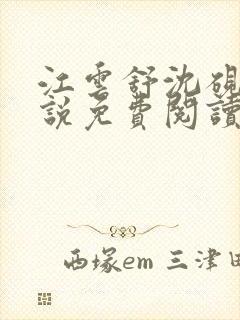 江雲舒沈硯
說免費閱讀
西塚em 三津田